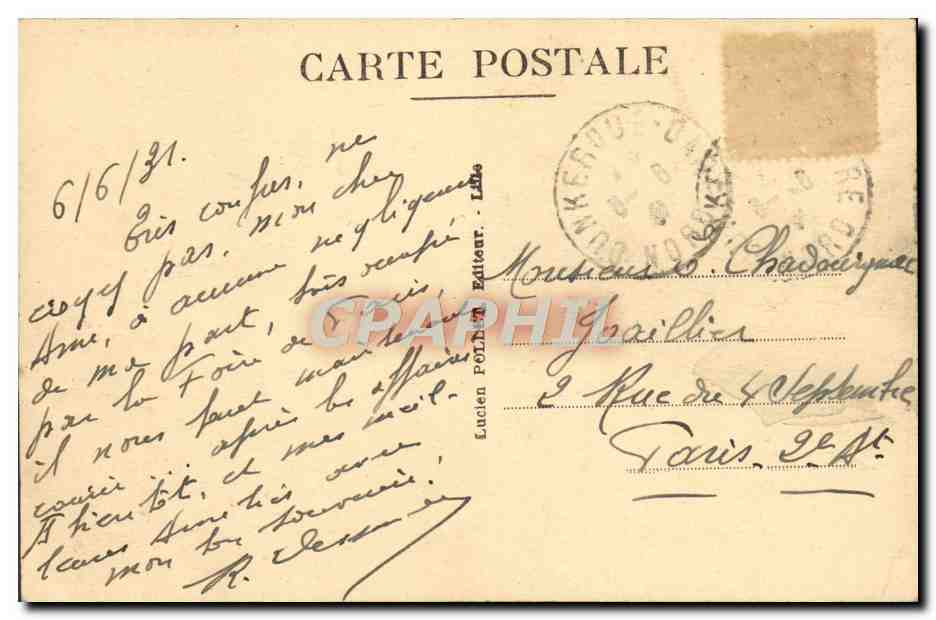 CARTE POSTALE
6/6/31.
Très confus, ne
croyez pas, mon cher
Ami, à aucune négligence
de ma part, très occupé
par la Foire de Paris,
il nous faut maintenant
courir après les affaires
A bientôt, et mes meil-
leures Amitiés avec
mon bon souvenir!
R.
Lucien POLLET Editeur. - Lille
DUNKERQUE
NORD
Monsieur
Joaillier
2 Rue du 4 Septembre
Paris. 2e At
CPAPHIL